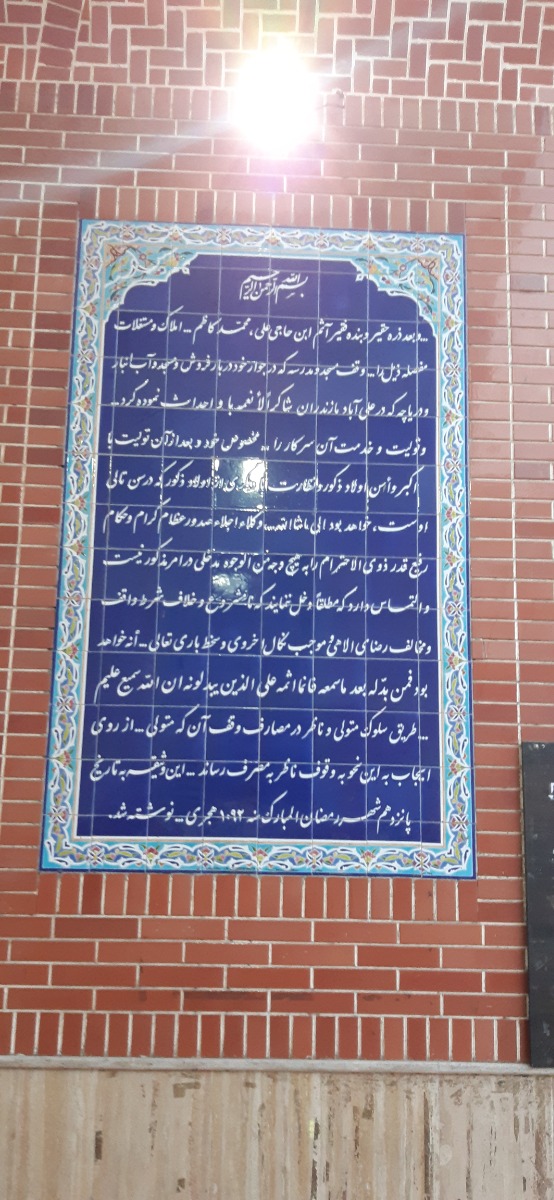 بسم الله الرحمن الرحیم
...و بعد ذره حقیر و بنده فقیر آثم ابن حاجی علی، محمد کاظم ... املاک و مستقلات
مفصله ذیل را ... وقف مسجد و مدرسه که در جوار خود در بارفروش و مسجد و آب انبار
و دریاچه که در علی آباد مازندران شاکراً لأنعمه بنا و احداث نموده کرد...
و تولیت و خدمت آن سرکار را ... مخصوص خود و بعد از آن تولیت با
اکبر و أسن اولاد ذکور و نظارت با اولاد ذکور که در سن تالی
اوست، خواهد بود الی ماشاالله... وکلاء اجلاء صدور عظام کرام و حکام
رفیع قدر ذوی الاحترام را به هیچ وجه من الوجوه مدخلی در امر مذکور نیست
و التماس دارد که مطلقاً دخل ننمایند که و خلاف شرط واقف
و مخالف رضای الاهی و موجب نکال اخروی و سخط باری تعالی ... آنه خواهد
بود فمن بدّله بعد ماسمعه فانما اثمه علی الذین یبدلونه ان الله سمیع علیم
... طریق سلوک متولی و ناظر در مصارف وقف آن که متولی ... از روی
ایجاب به این نحو به وقوف ناظر به مصرف رساند ... این وثیقه به تاریخ
پانزدهم شهر رمضان المبارک سنه ۱۰۹۲ هجری ... نوشته شد.